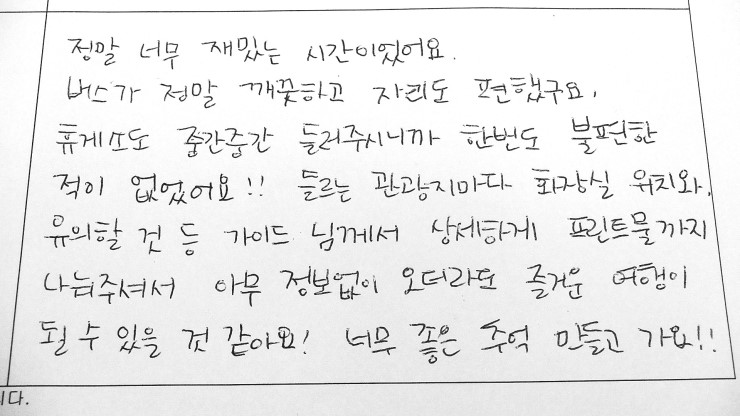 정말 너무 재밌는 시간이었어요.
버스가 정말 깨끗하고 자리도 편했구요,
휴게소도 중간중간 들러주시니까 한번도 불편한
적이 없었어요!! 들르는 관광지마다 화장실 위치와,
유의할 것 등 가이드 님께서 상세하게 프린트물까지
나눠주셔서 아무 정보없이 오더라도 즐거운 여행이
될 수 있을 것 같아요! 너무 좋은 추억 만들고 가요!!
니다.